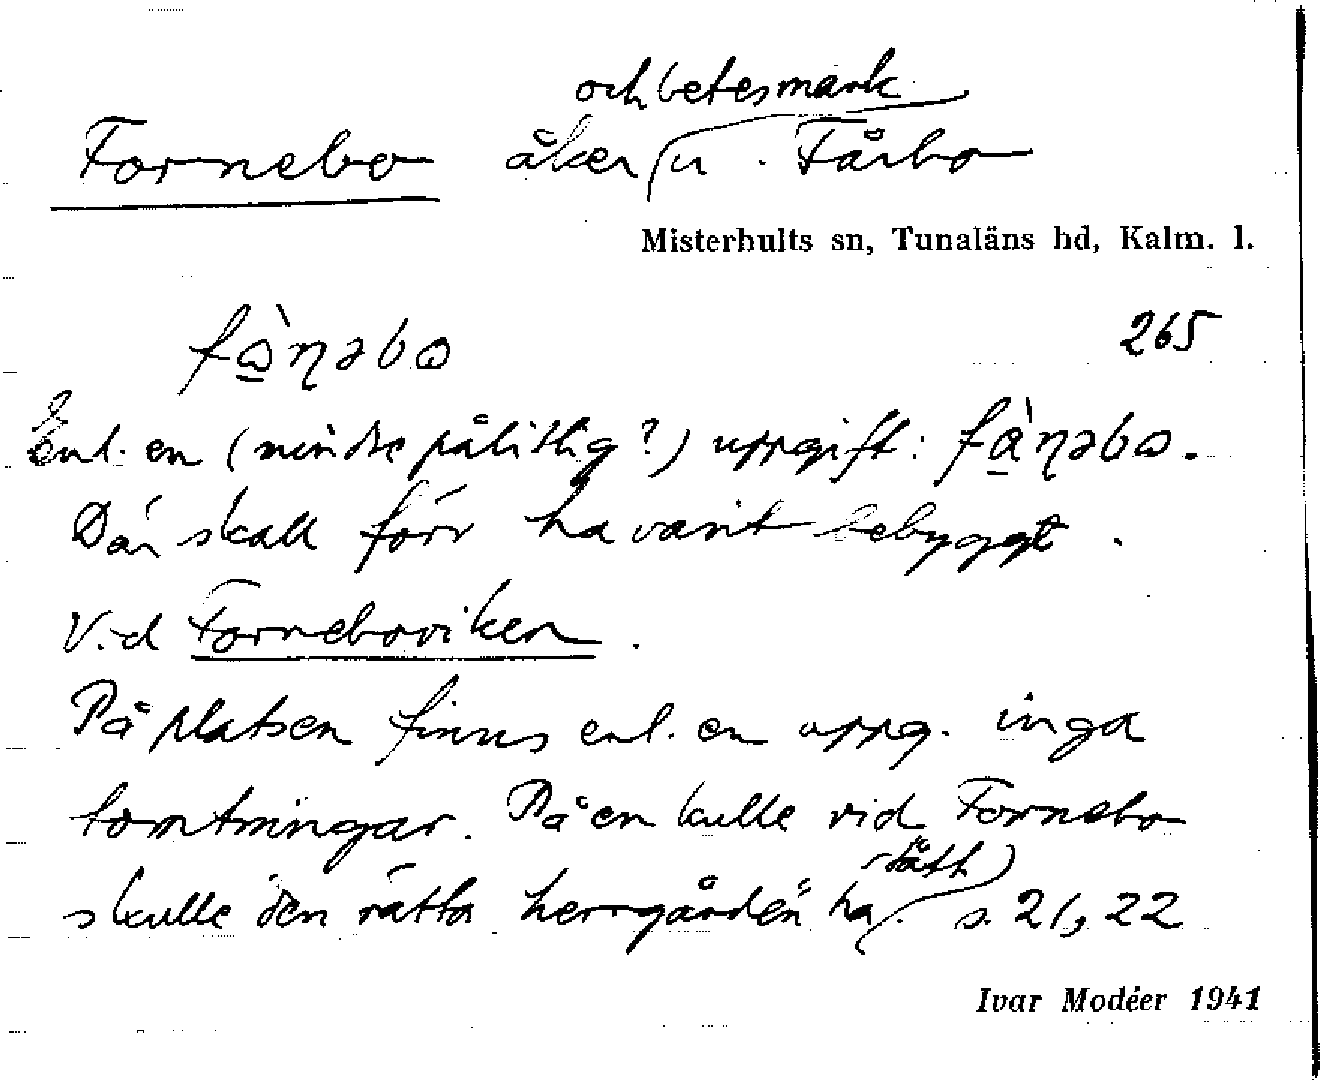 Fornebo åker och betesmark u. Fårbo
Misterhults sn, Tunaläns hd, Kalm. l.
fὼ̱ɳəbω 265
Enl. en (mindre pålitlig?) uppgift: fὰ̱ɳəbω.
Där skall förr ha varit bebyggt.
Vid Forneboviken.
På platsen finns enl. en uppg. inga
tomtningar. På en kulle vid Fornebo
skulle den rätta herrgården ha stått. s. 21, 22
Ivar Modéer 1941